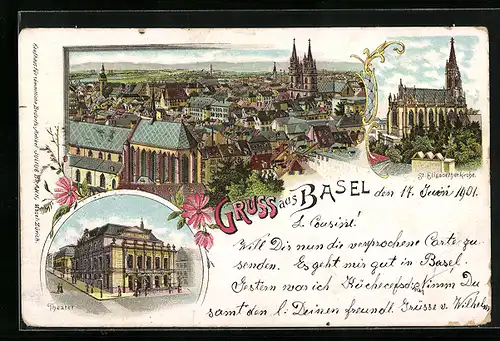 St. Elisabethenkirche.
GRUSS aus BASEL
den 14. Juni 1901.
L. Cousine!
Will Dir nun die versprochene Carte zu-
senden. Es geht mir gut in Basel.
Gestern war ich
Du
samt den l. Deinen freundl. Grüsse v. Wilhelm
Theater